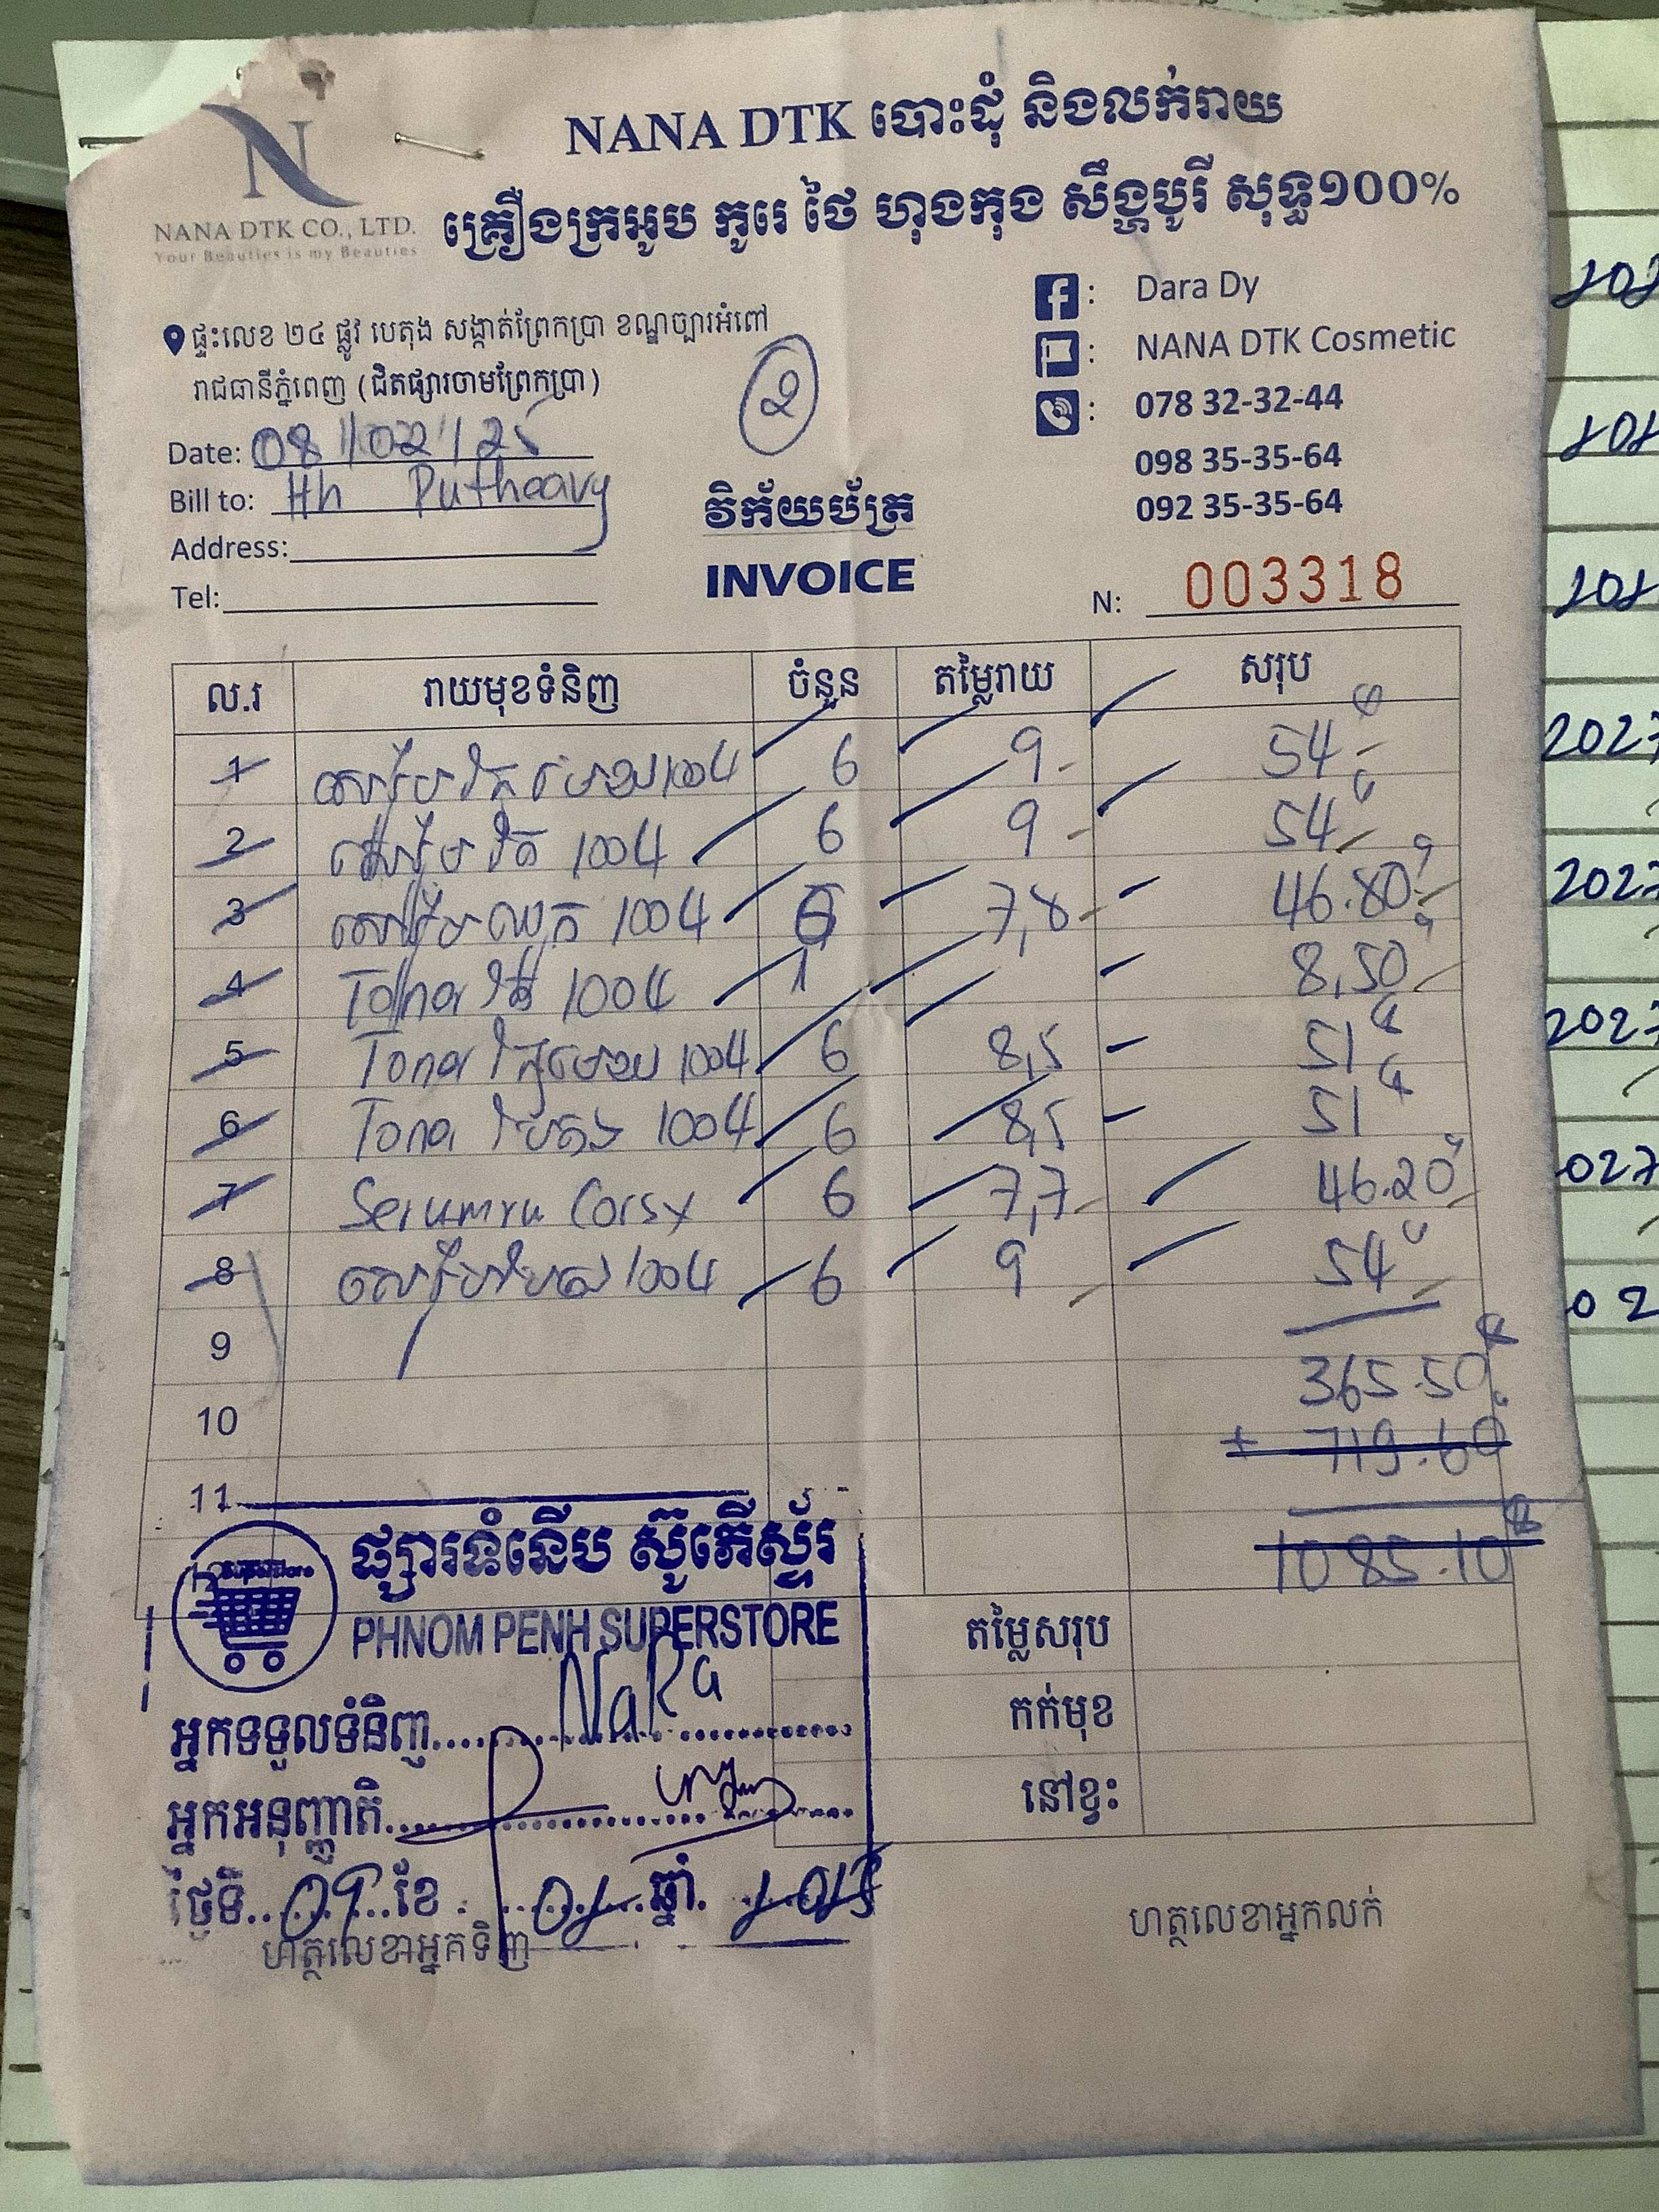 NANA DTK បោះដុំ និងលក់រាយ
NANA DTK CO., LTD.
Your Beauties is my Beauties
គ្រឿងក្រអូប កូរេ ថៃ ហុងកុង សឹង្ហបូរី សុទ្ធ១០០%
ផ្ទះលេខ ២៤ ផ្លូវ បេតុង សង្កាត់ព្រែកប្រា ខណ្ឌច្បារអំពៅ
រាជធានីភ្នំពេញ (ជិតផ្សារចាមព្រែកប្រា)
: Dara Dy
: NANA DTK Cosmetic
: 078 32-32-44
098 35-35-64
092 35-35-64
2
Date: 08/02/25
Bill to: Hh Putheavy
Address:
Tel:
វិក័យប័ត្រ
INVOICE
N: 003318
ល.រ រាយមុខទំនិញ ចំនួន តម្លៃរាយ សរុប
1 1004 6 9 54
2 1004 6 9 54
3 1004 6 7,8 46.80
4 1004 1 8,50
5 Toner 1004 6 8,5 51
6 Toner 1004 6 8,5 51
7 Serum 6 7,7 46.20
8 1004 6 9 54
9 365.50
10 + 719.60
11
1085.10
ផ្សារទំនើប ស៊ូភើស្ទ័រ
PHNOM PENH SUPERSTORE
តម្លៃសរុប
កក់មុខ
នៅខ្វះ
អ្នកទទួលទំនិញ NaRa
អ្នកអនុញ្ញាតិ
ថ្ងៃទី 09 ខែ 02 ឆ្នាំ 2025
ហត្ថលេខាអ្នកទិញ
ហត្ថលេខាអ្នកលក់
202
202
202
2027
2027
2027
027
02